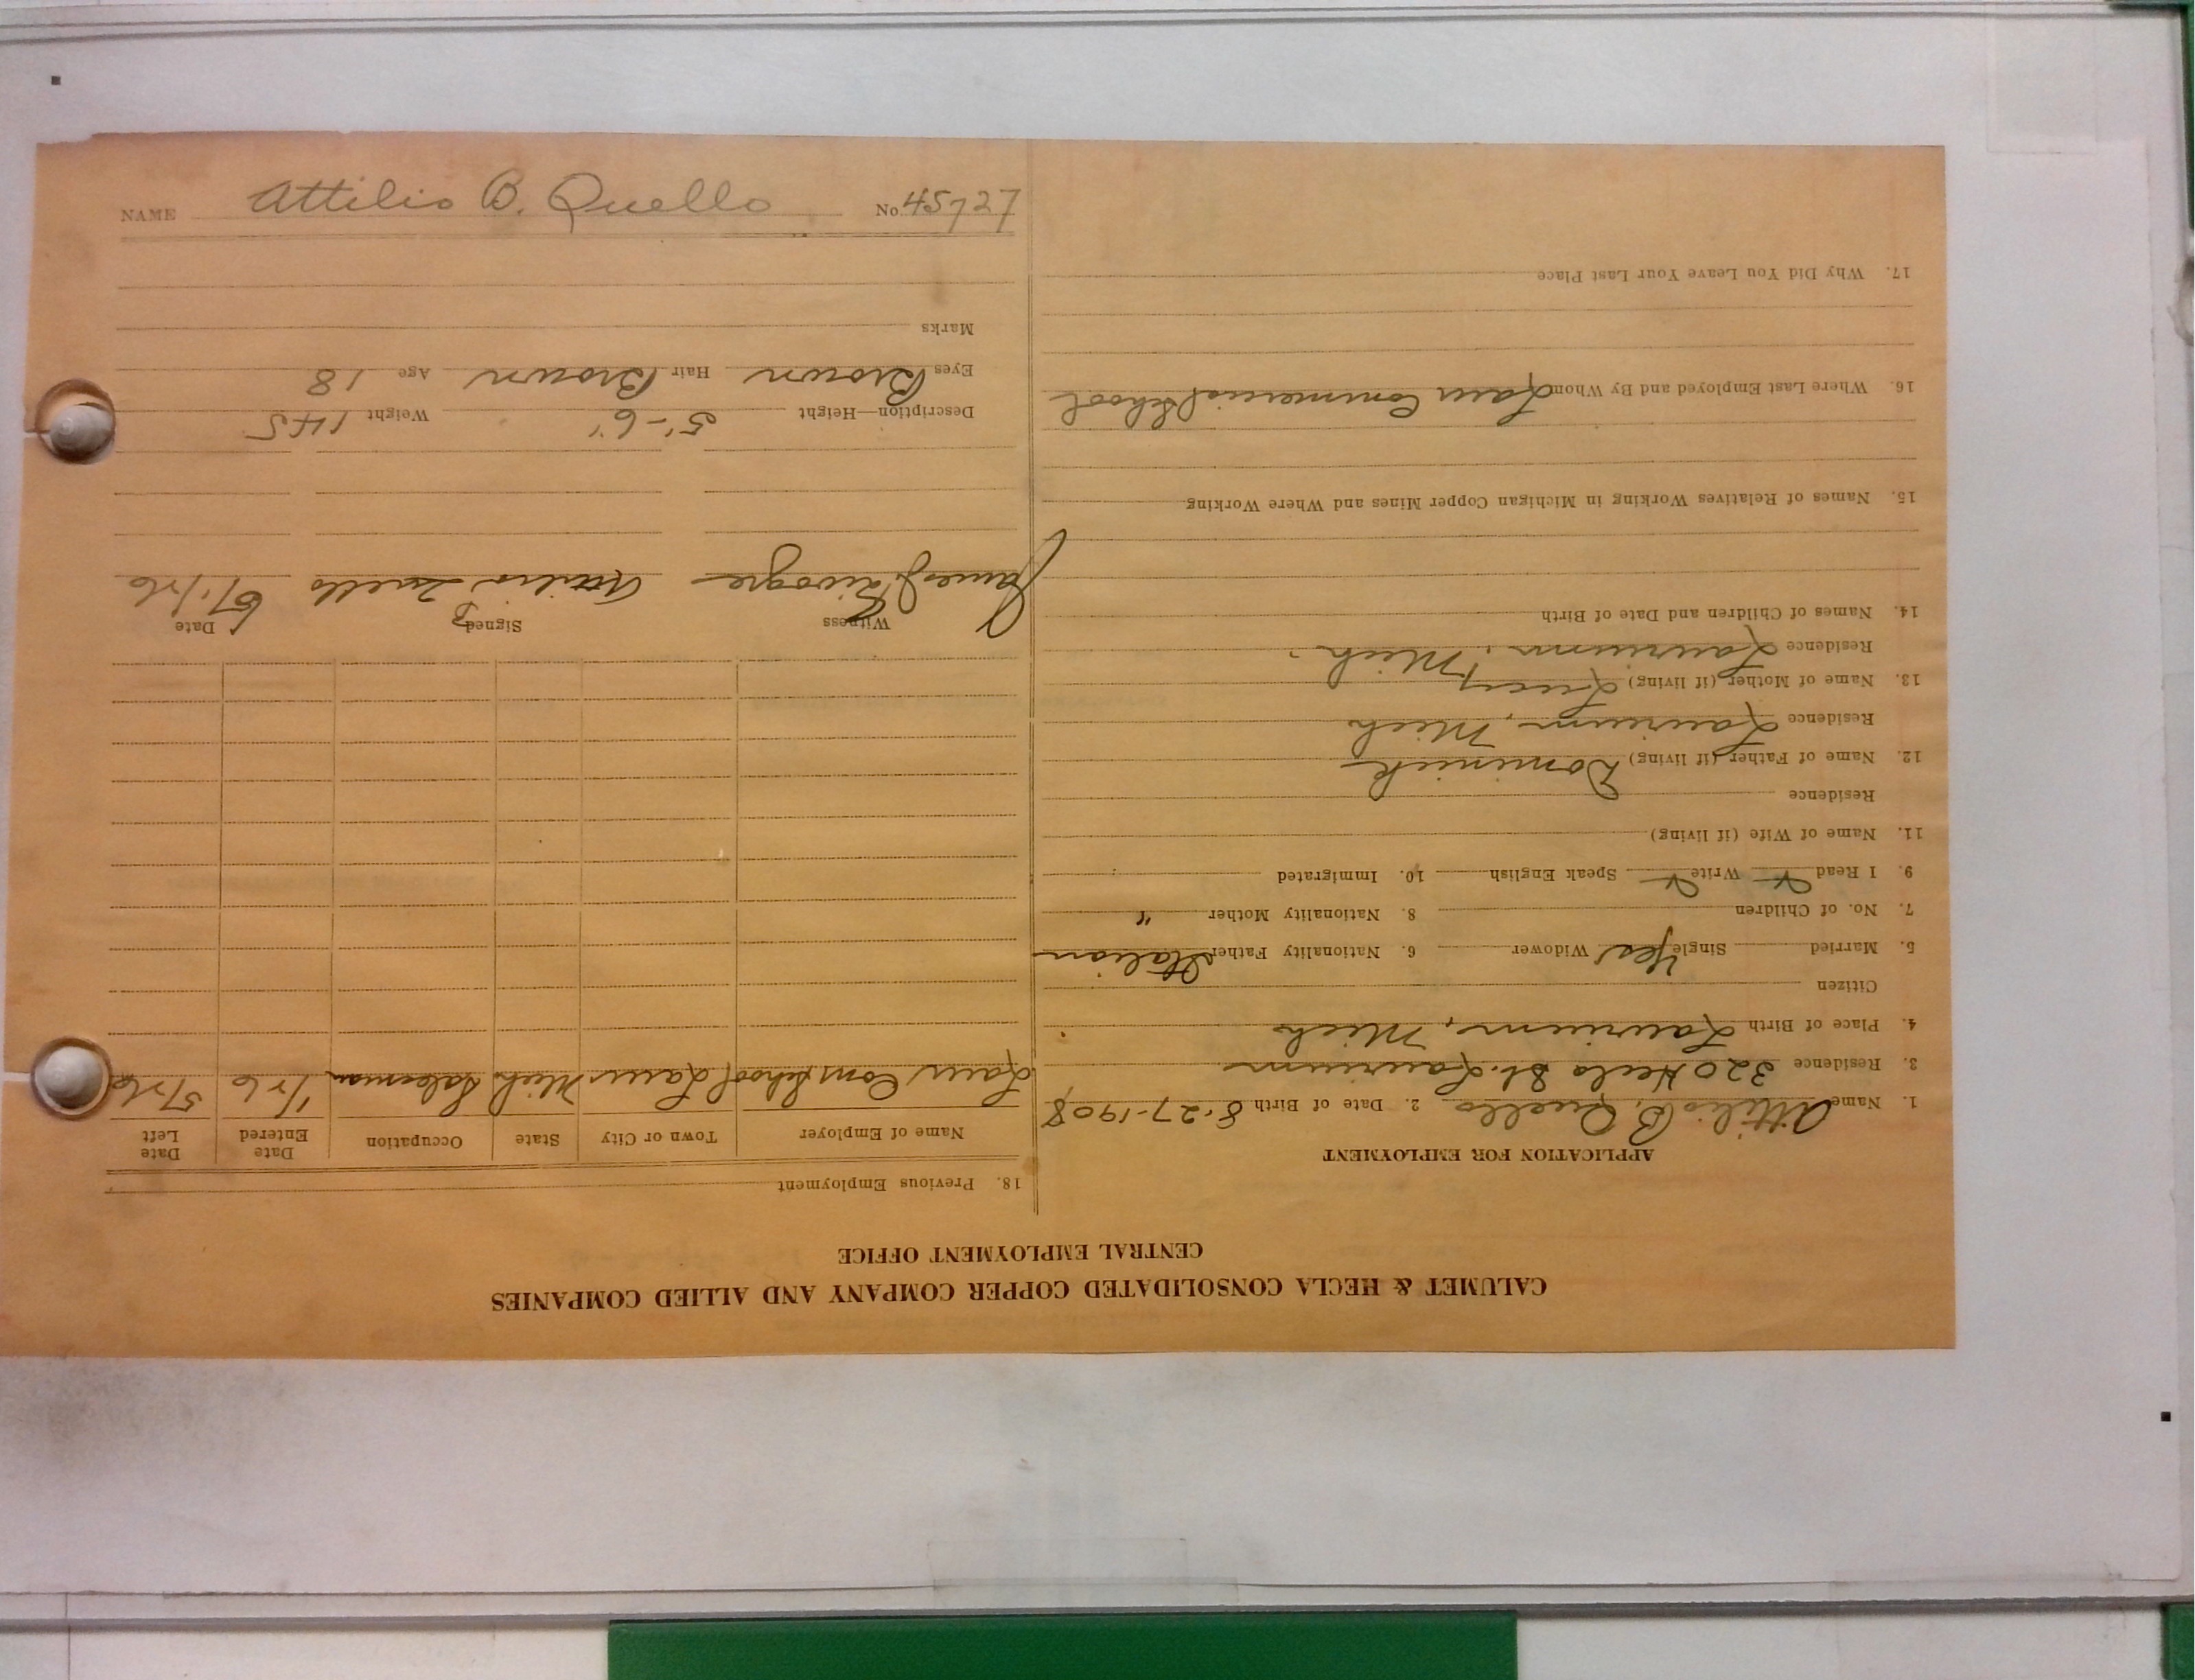 CALUMET & HECLA CONSOLIDATED COPPER COMPANY AND ALLIED COMPANIES
CENTRAL EMPLOYMENT OFFICE
APPLICATION FOR EMPLOYMENT
1. Name Attilio B. Quello 2. Date of Birth 8-27-1908
3. Residence 320 Hecla St. Laurium
4. Place of Birth Laurium, Mich
Citizen
5. Married Single Yes Widower 6. Nationality Father Italian
7. No. of Children 8. Nationality Mother "
9. I Read Write Speak English 10. Immigrated
11. Name of Wife (if living)
Residence
12. Name of Father (if living) Dominick
Residence Laurium, Mich
13. Name of Mother (if living) Lucy
Residence Laurium, Mich.
14. Names of Children and Date of Birth
15. Names of Relatives Working in Michigan Copper Mines and Where Working
16. Where Last Employed and By Whom Laur Commercial School
17. Why Did You Leave Your Last Place
18. Previous Employment
Name of Employer Town or City State Occupation Date Entered Date Left
Laur Com School Laur Mich Salesman 1/26 5/26
Witness Signed Date
James Attilio Quello 6/1/26
Description—Height 5'-6" Weight 145
Eyes Brown Hair Brown Age 18
Marks
NAME Attilio B. Quello No 45727